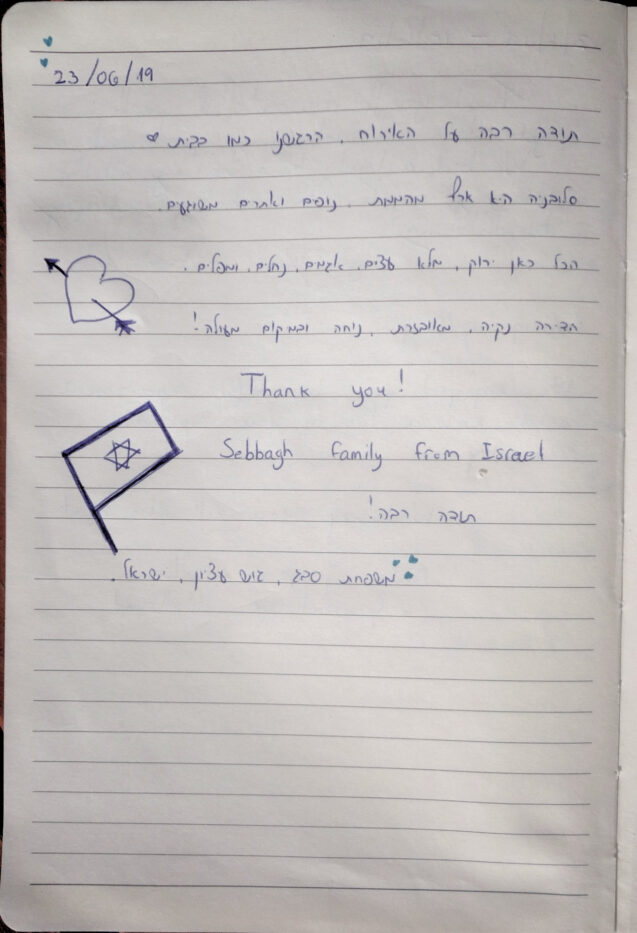 23/06/19
תודה רבה על האירוח, הרגשנו כמו בבית
סלובניה היא ארץ מהממת, נופים ואתרים משוגעים.
הכל כאן ירוק, מלא עצים, אגמים, נחלים, ומפלים.
הדירה נקיה, מאובזרת, נוחה ובמקום מעולה!
Thank you!
Sebbagh family from Israel
תודה רבה!
משפחת סבג, גוש עציון, ישראל.